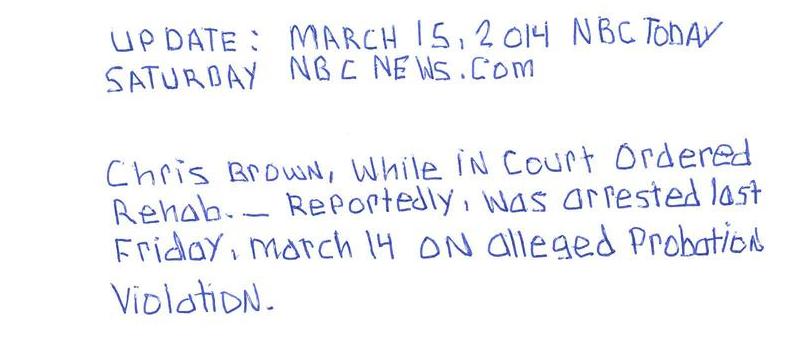 UPDATE: MARCH 15, 2014 NBC TODAY
SATURDAY NBC NEWS.COM
Chris Brown, While in Court Ordered
Rehab. — Reportedly, was arrested last
Friday, March 14 ON alleged Probation
Violation.